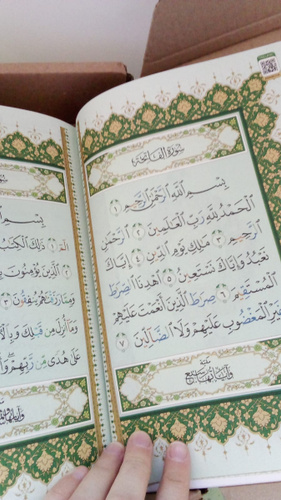 سورة الفاتحة
بِسْمِ ٱللَّهِ ٱلرَّحْمَٰنِ ٱلرَّحِيمِ ١
ٱلْحَمْدُ لِلَّهِ رَبِّ ٱلْعَٰلَمِينَ ٢ ٱلرَّحْمَٰنِ
ٱلرَّحِيمِ ٣ مَٰلِكِ يَوْمِ ٱلدِّينِ ٤ إِيَّاكَ
نَعْبُدُ وَإِيَّاكَ نَسْتَعِينُ ٥ ٱهْدِنَا ٱلصِّرَٰطَ
ٱلْمُسْتَقِيمَ ٦ صِرَٰطَ ٱلَّذِينَ أَنْعَمْتَ عَلَيْهِمْ
غَيْرِ ٱلْمَغْضُوبِ عَلَيْهِمْ وَلَا ٱلضَّآلِّينَ ٧
مكية
وآياتها سبع
سورة
بِسْمِ ٱللَّهِ
الٓمٓ ١ ذَٰلِكَ ٱلْكِتَٰبُ
٢ ٱلَّذِينَ يُؤْمِنُونَ
وَمِمَّا رَزَقْنَٰهُمْ يُنفِقُونَ ٣
وَمَآ أُنزِلَ مِن قَبْلِكَ وَبِٱلْ
عَلَىٰ هُدًى مِّن رَّبِّهِمْ